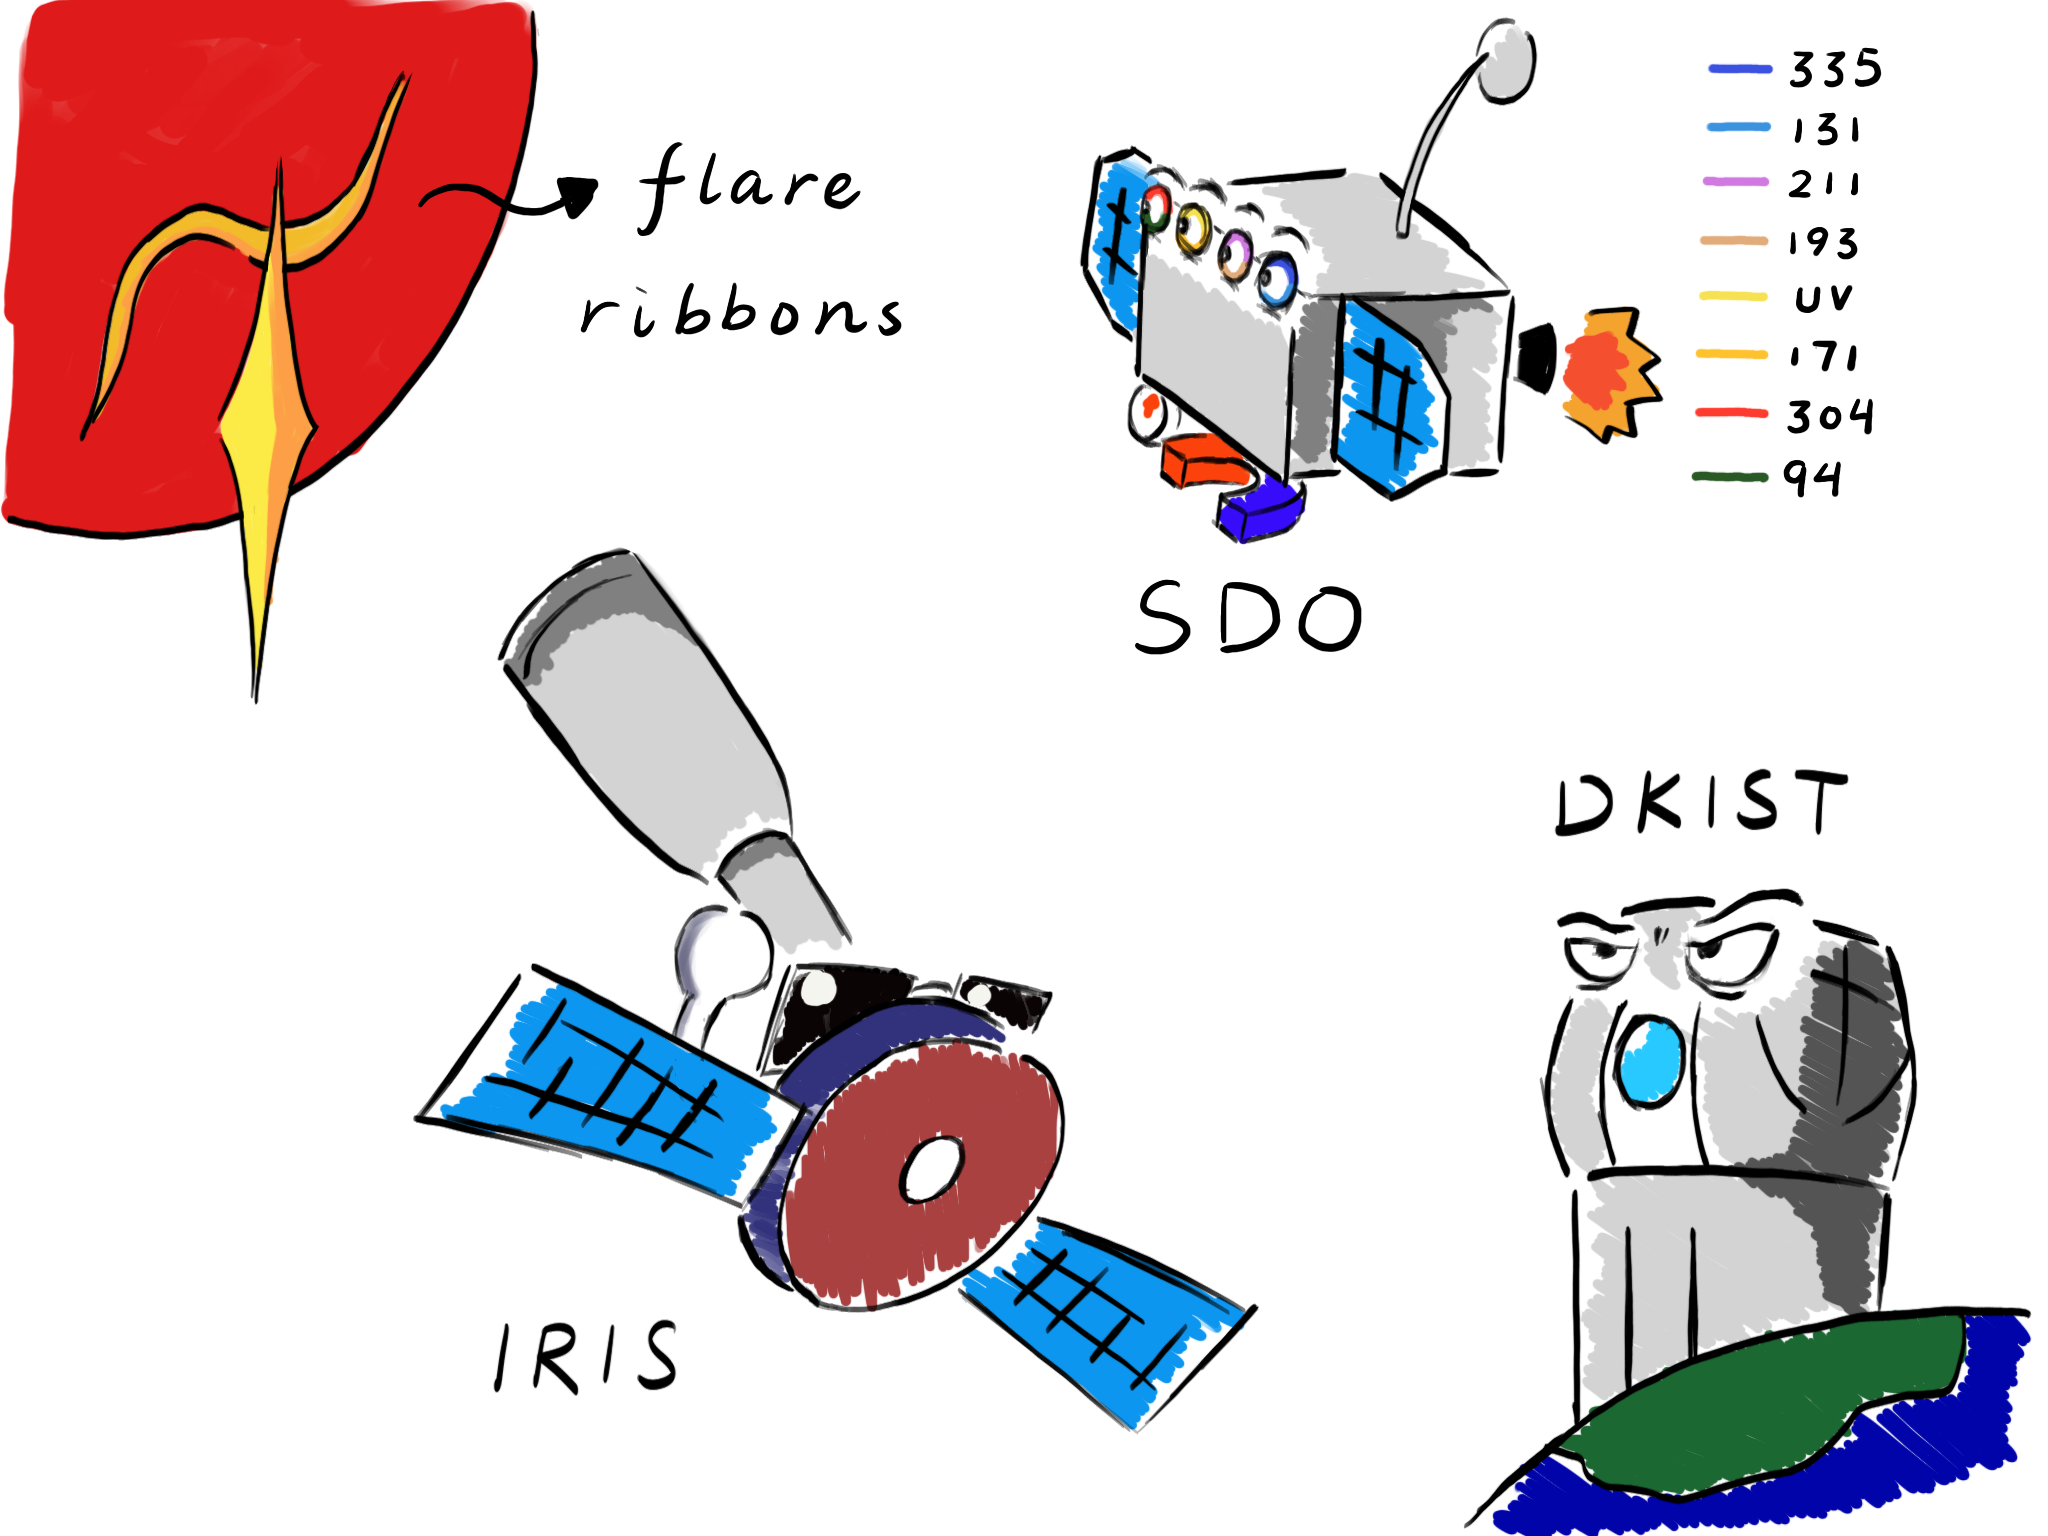 flare
ribbons
335
131
211
193
UV
171
304
94
SDO
DKIST
IRIS